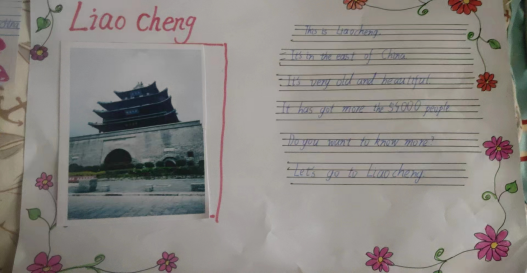 Liao cheng
This is Liaocheng.
It's in the east of China.
It's very old and beautiful.
It has got more the 55000 people
Do you want to know more?
Let's go to Liaocheng.